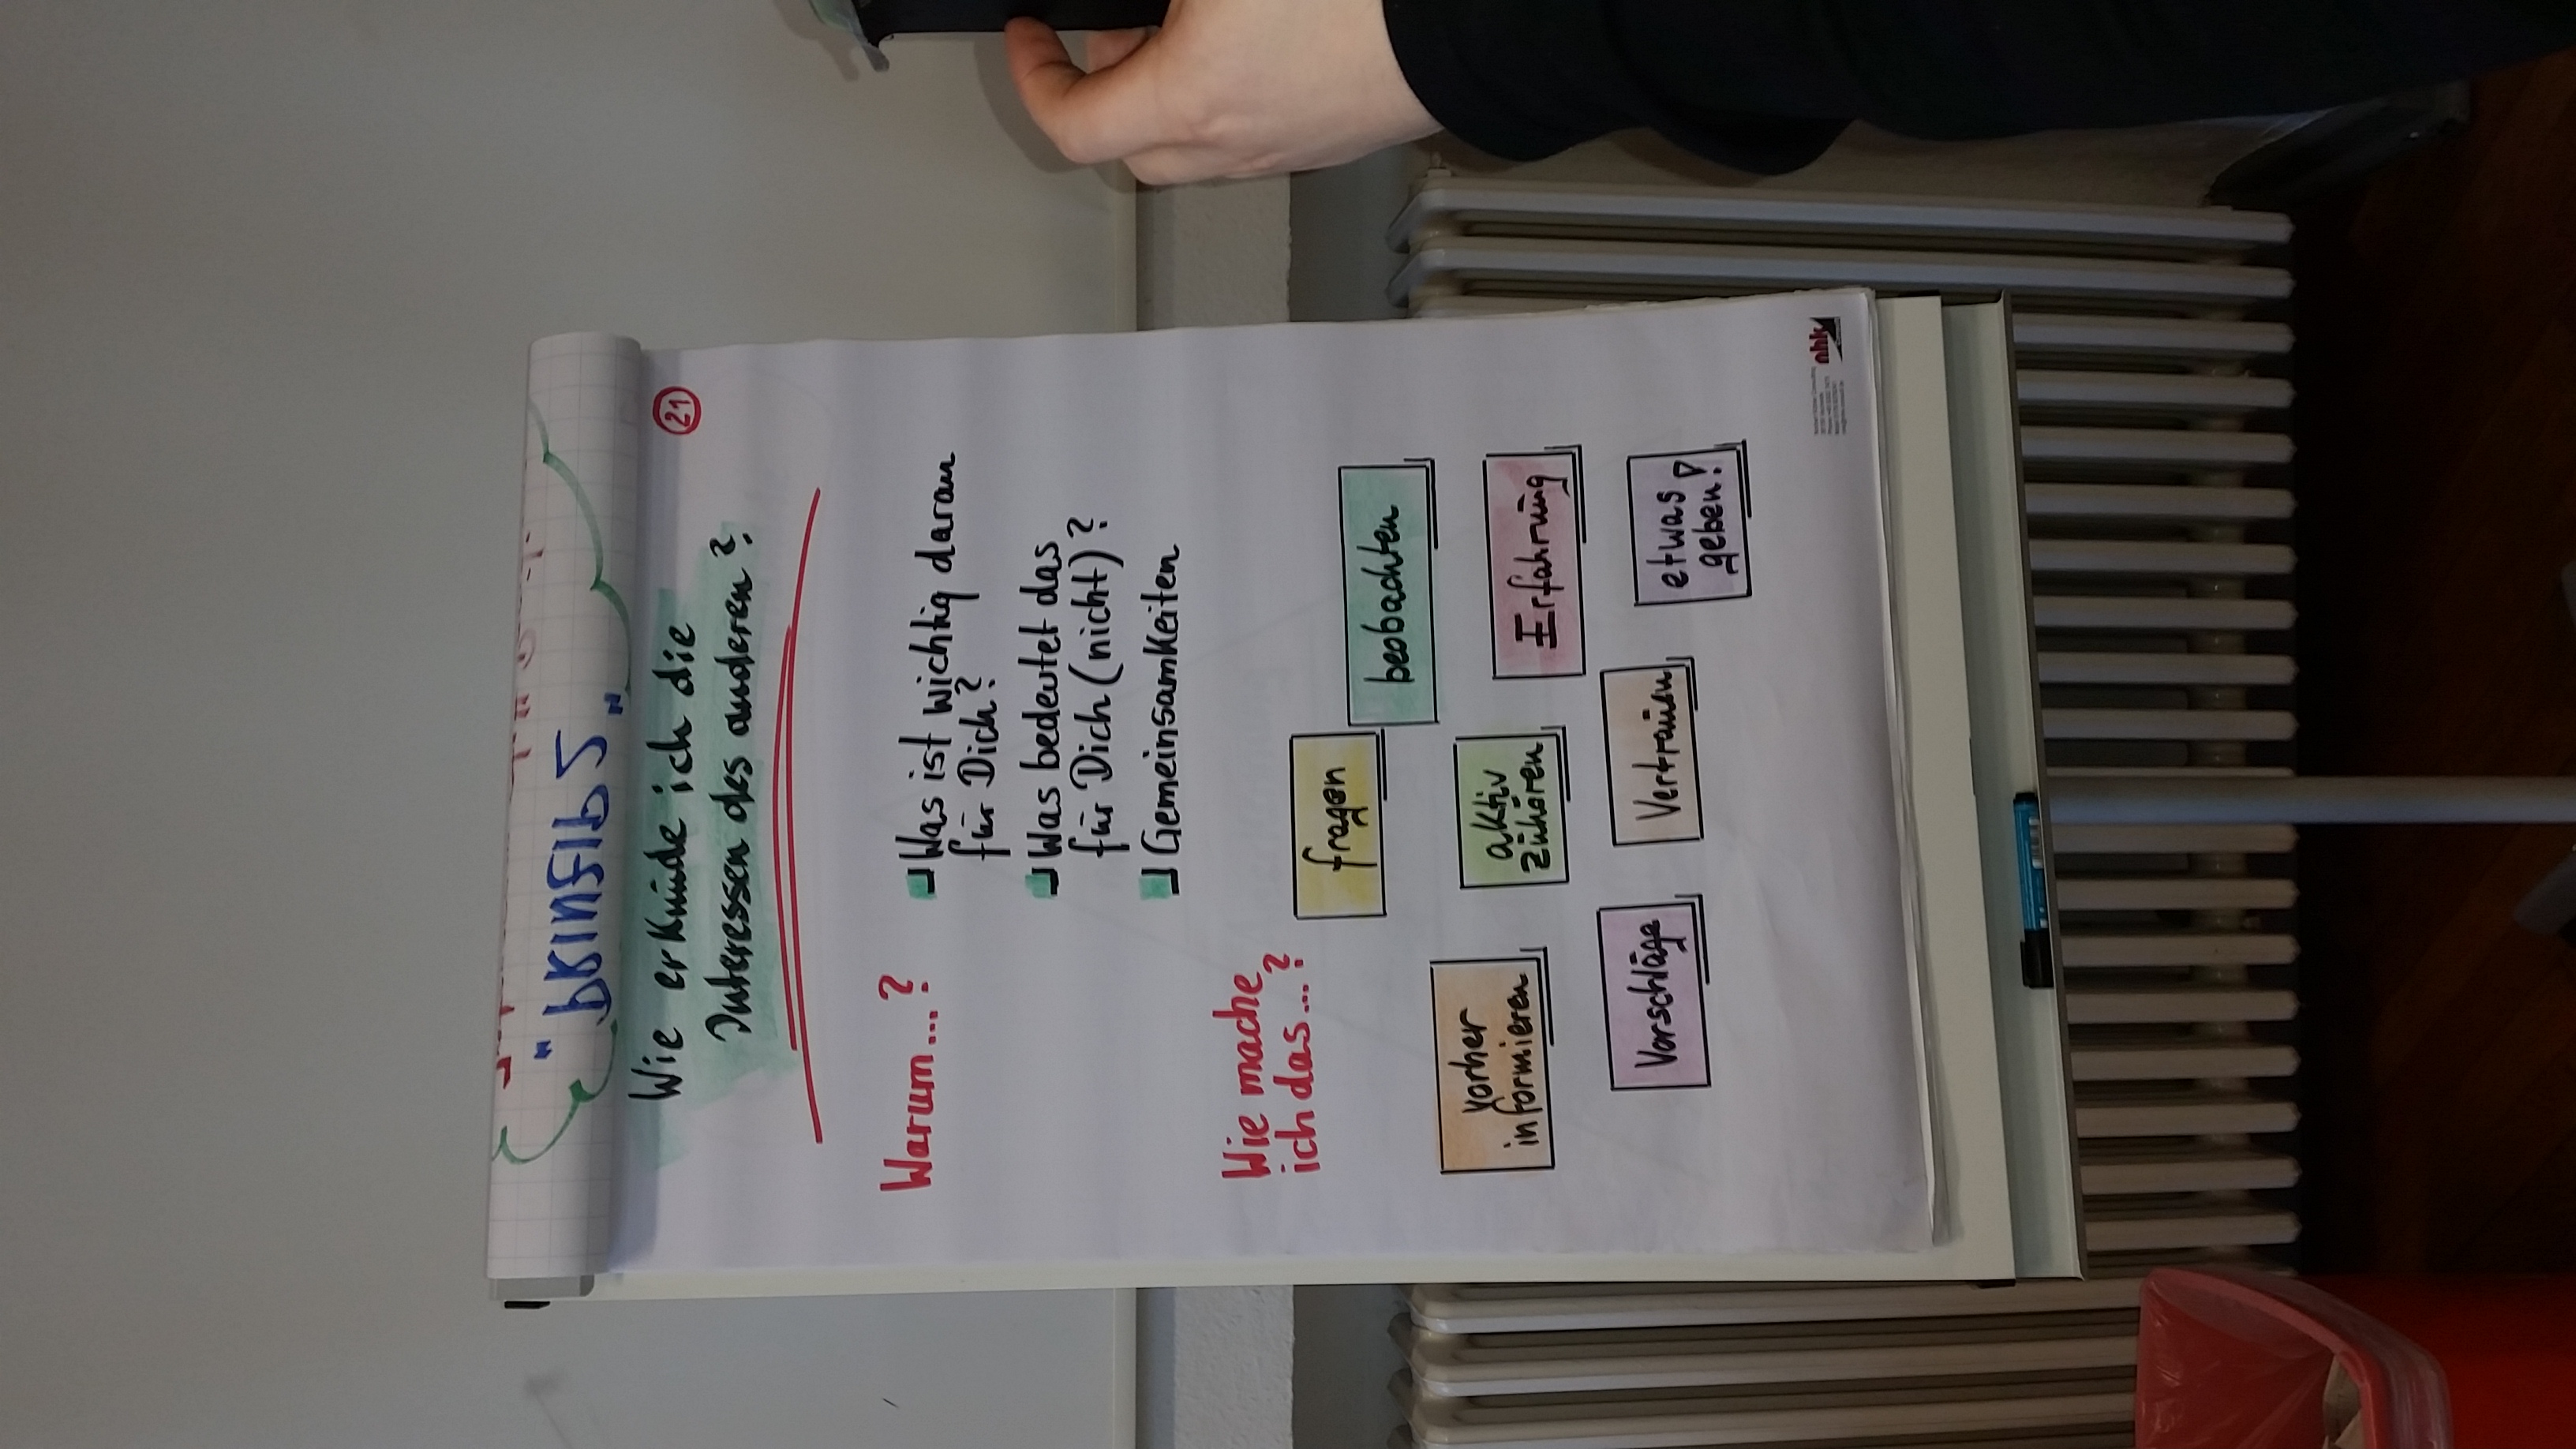 „PRINZIP 2"
Wie erkunde ich die
Interessen des anderen?
21
Warum...?
Was ist wichtig daran
für Dich?
Was bedeutet das
für Dich (nicht)?
Gemeinsamkeiten
Wie mache
ich das...?
fragen
beobachten
vorher
informieren
aktiv
zuhören
Erfahrung
Vorschläge
Vertrauen
etwas
geben!
nhk